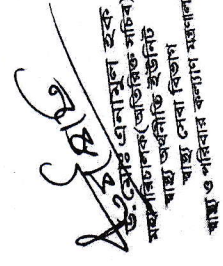 ড. মোঃ এনামুল হক
মহাপরিচালক (অতিরিক্ত সচিব)
স্বাস্থ্য অর্থনীতি ইউনিট
স্বাস্থ্য সেবা বিভাগ
স্বাস্থ্য ও পরিবার কল্যাণ মন্ত্রণাল